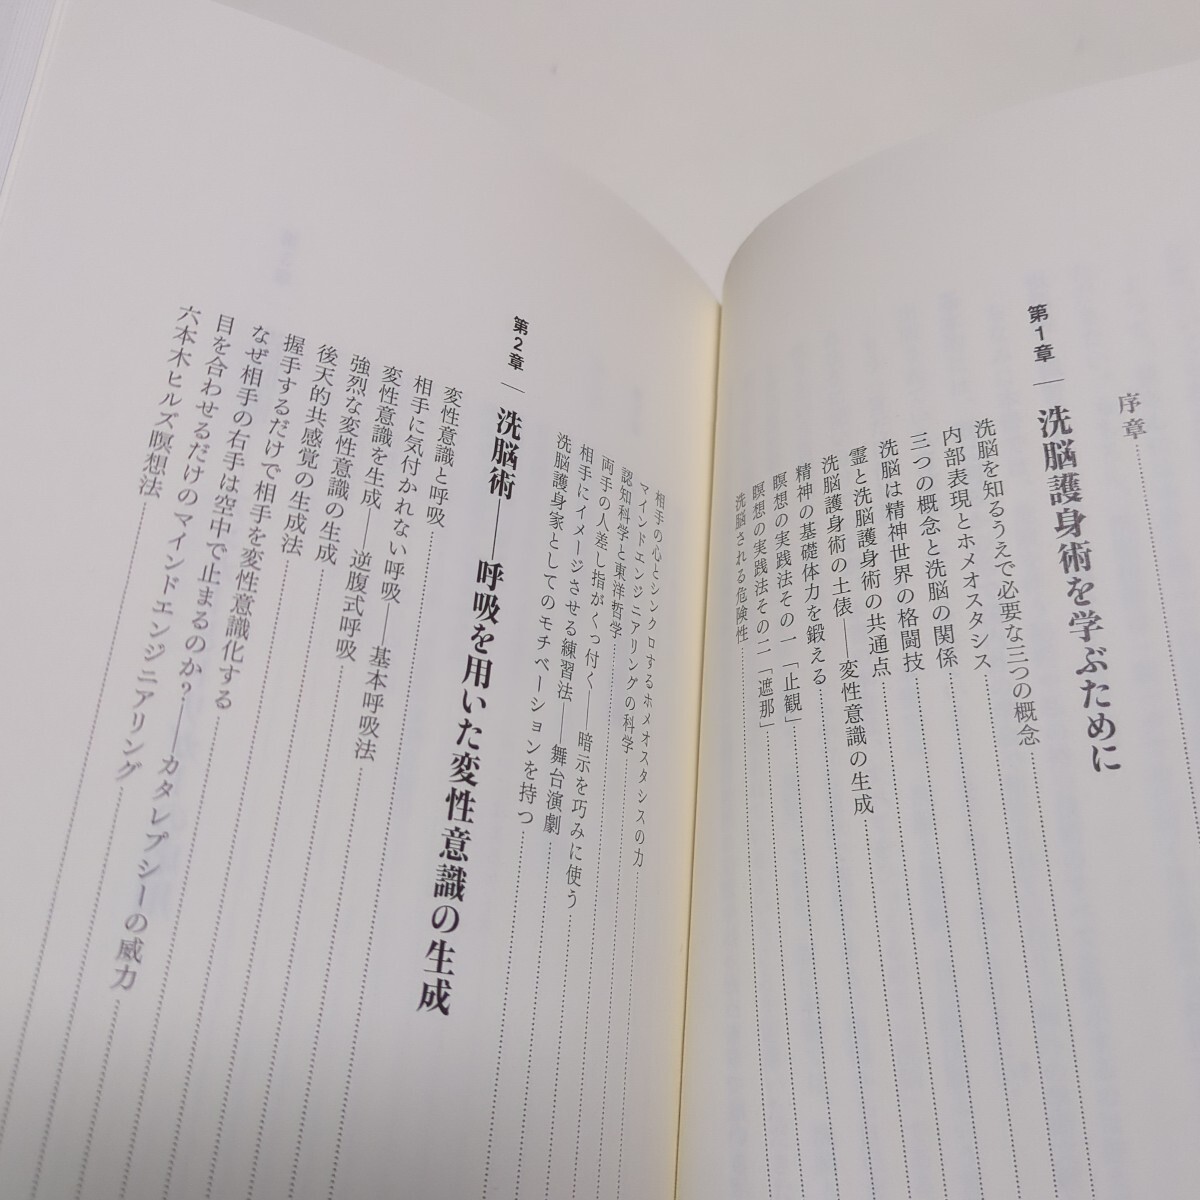 序章
第1章 ― 洗脳護身術を学ぶために
洗脳を知るうえで必要な三つの概念
内部表現とホメオスタシス
三つの概念と洗脳の関係
洗脳は精神世界の格闘技
霊と洗脳護身術の共通点
洗脳護身術の土俵――変性意識の生成
精神の基礎体力を鍛える
瞑想の実践法その一「止観」
瞑想の実践法その二「遮那」
洗脳される危険性
相手の心とシンクロするホメオスタシスの力
マインドエンジニアリングの科学
認知科学と東洋哲学
両手の人差し指がくっ付く――暗示を巧みに使う
相手にイメージさせる練習法――舞台演劇
洗脳護身家としてのモチベーションを持つ
第2章 ― 洗脳術――呼吸を用いた変性意識の生成
変性意識と呼吸
相手に気付かれない呼吸――基本呼吸法
変性意識を生成――逆腹式呼吸
強烈な変性意識の生成
後天的共感覚の生成法
握手するだけで相手を変性意識化する
なぜ相手の右手は空中で止まるのか?――カタレプシーの威力
目を合わせるだけのマインドエンジニアリング
六本木ヒルズ瞑想法